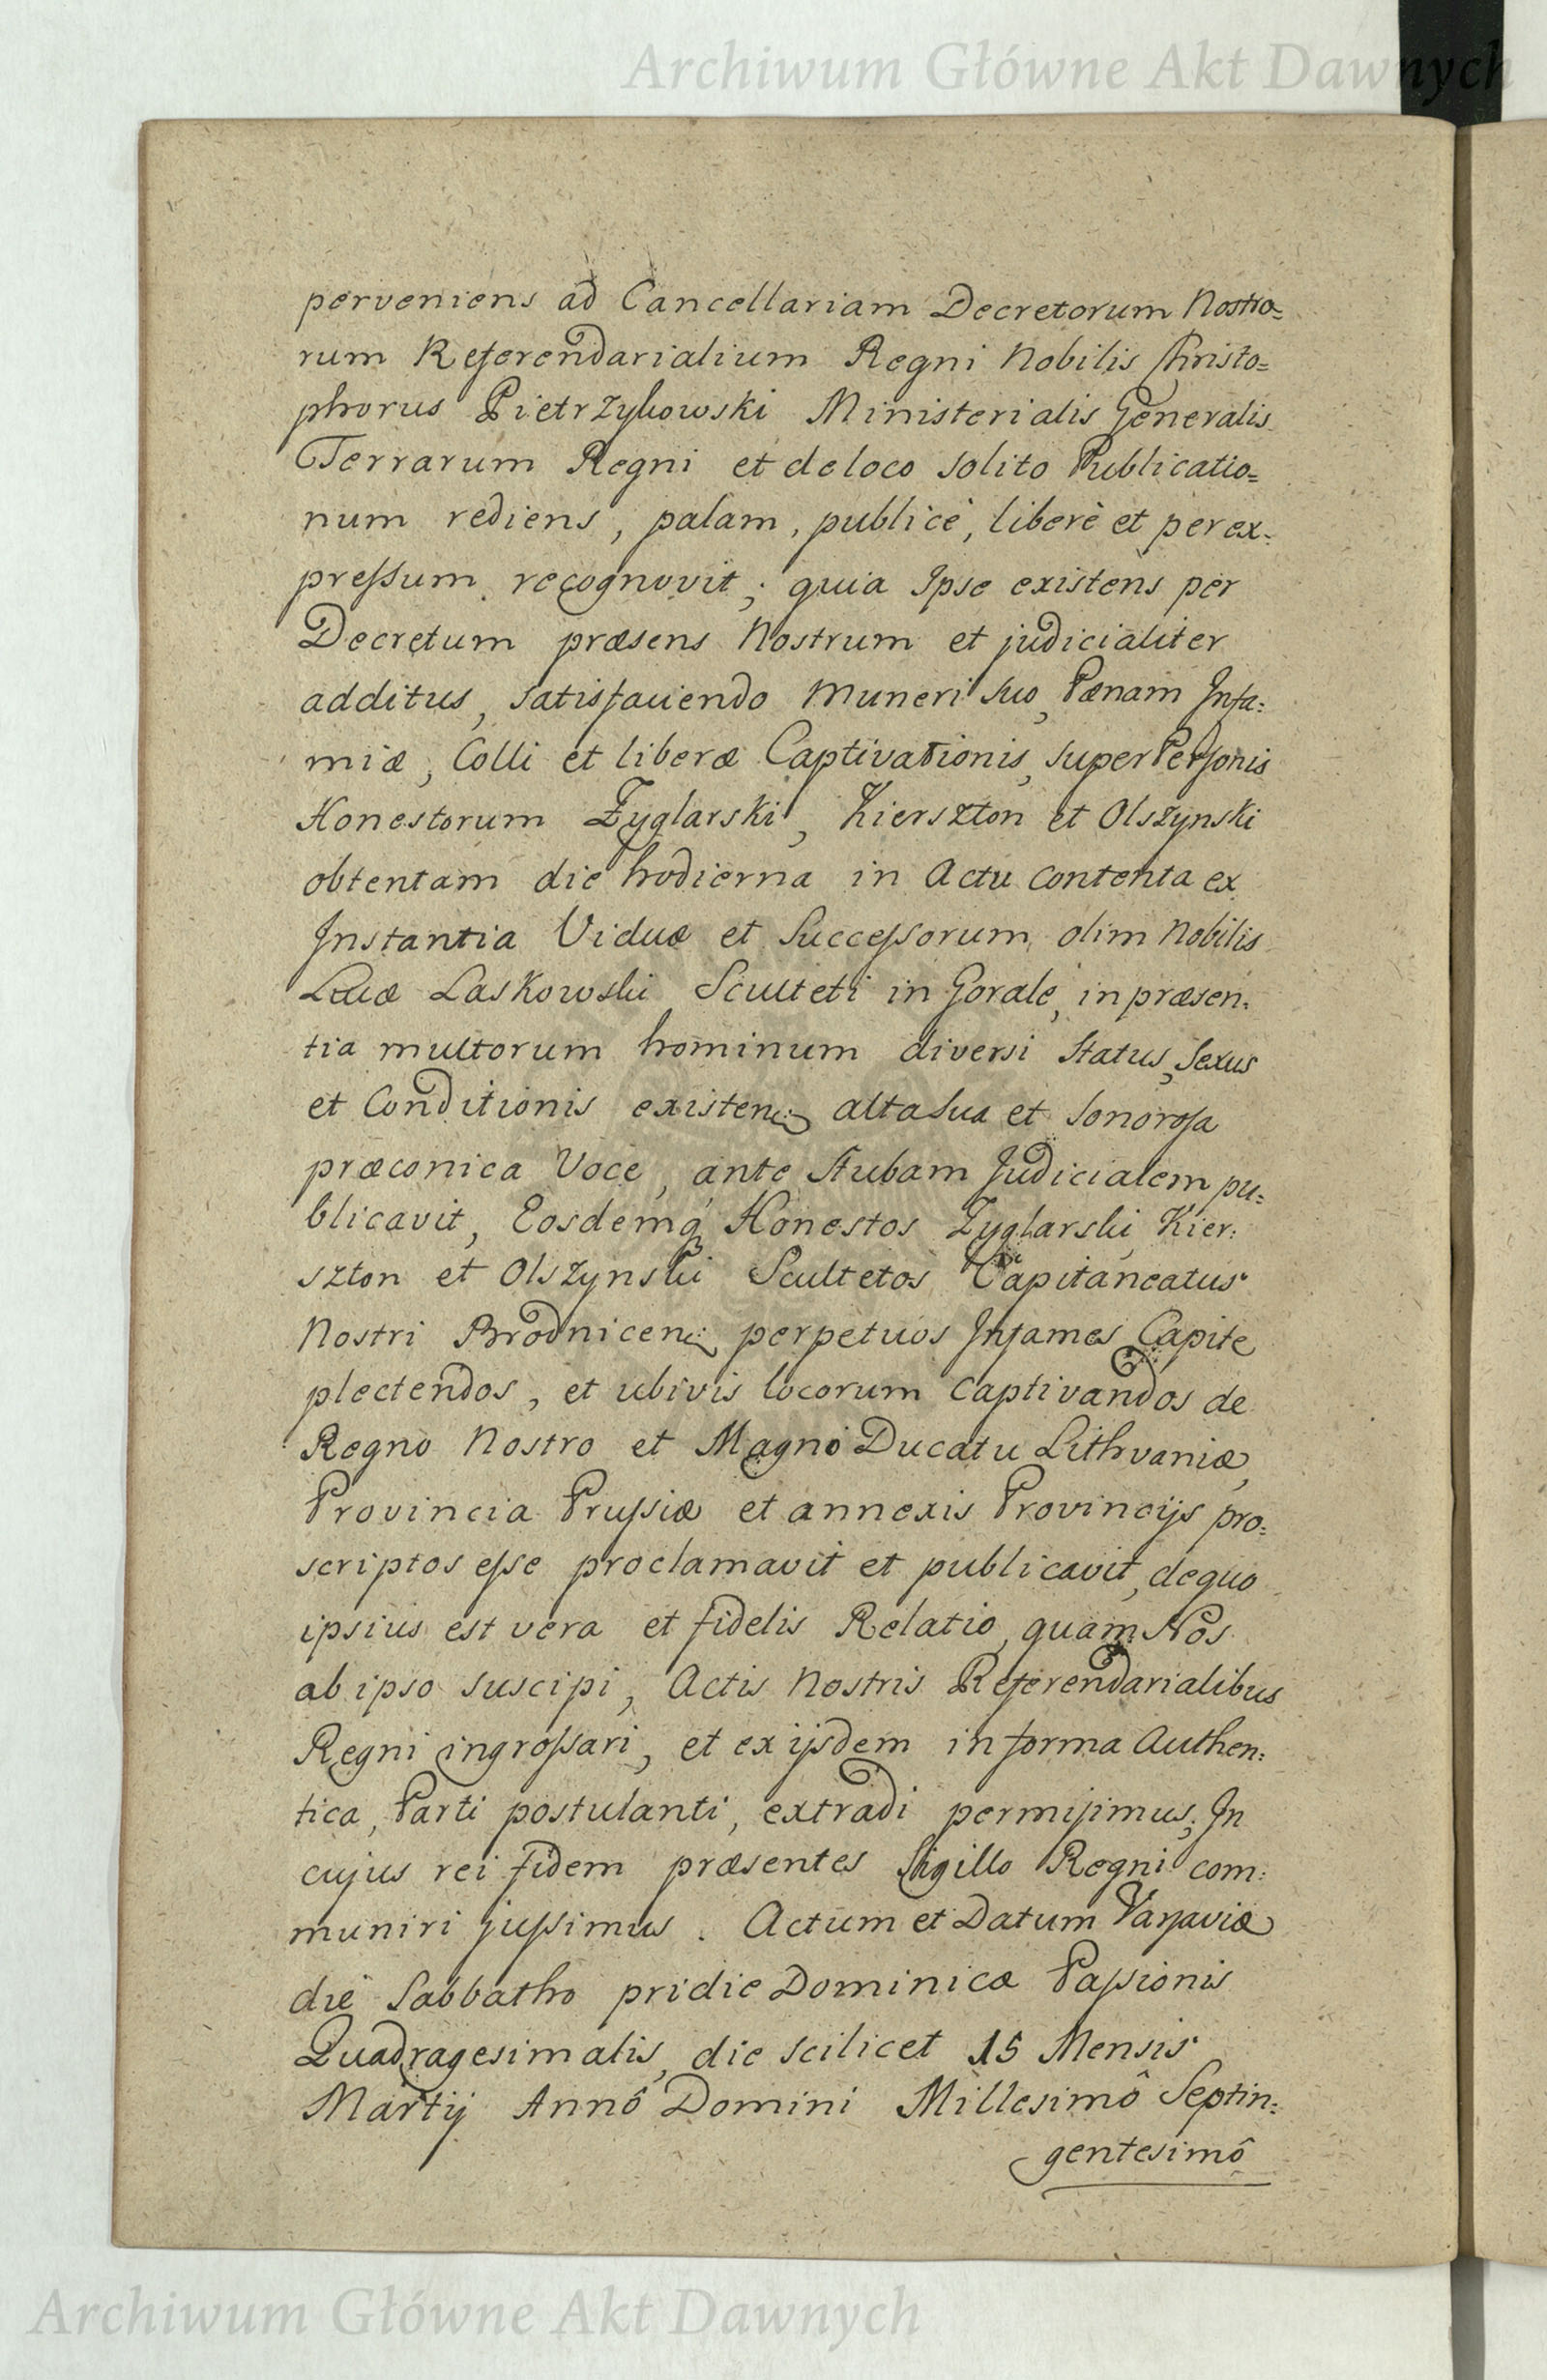 Archiwum Główne Akt Dawnych
perveniens ad Cancellariam Decretorum Nostro=
rum Referendarialium Regni Nobilis Christo=
phorus Pietrzykowski Ministerialis Generalis
Terrarum Regni et de loco solito Publicatio=
num rediens, palam, publicè, liberè et per ex=
preſsum recognovit; quia Ipse existens per
Decretum præsens Nostrum et judicialiter
additus, satisfaciendo Muneri suo, Pænam Infa=
miæ, Colli et liberæ Captivationis, super Perſonis
Honestorum Zyglarski, Kierszton et Olszynski
obtentam die hodierna in Actu contenta ex
Instantia Viduæ et Succeſsorum olim Nobilis
Lucæ Laskowski Sculteti in Gorale, in præsen=
tia multorum hominum diversi Status, Sexus
et Conditionis existen: alta sua et sonoroſa
præconica Voce, ante Stubam Judicialem pu=
blicavit, Eosdemq Honestos Zyglarski, Kier=
szton et Olszynski Scultetos Capitaneatus
Nostri Brodnicen: perpetuos Infames Capite
plectendos, et ubivis locorum captivandos de
Regno Nostro et Magno Ducatu Lithvaniæ,
Provincia Pruſsiæ et annexis Provincijs pro=
scriptos eſse proclamavit et publicavit, de quo
ipsius est vera et fidelis Relatio, quam Nos
ab ipso suscipi, Actis Nostris Referendarialibus
Regni ingroſsari, et ex ijsdem in forma Authen=
tica, Parti postulanti, extradi permiſimus; In
cujus rei fidem præsentes Sigillo Regni com=
muniri juſsimus. Actum et Datum Varſaviæ
die Sabbatho pridie Dominicæ Paſsionis
Quadragesimalis, die scilicet 15 Mensis
Martij Annô Domini Millesimô Septin=
gentesimô
Archiwum Główne Akt Dawnych